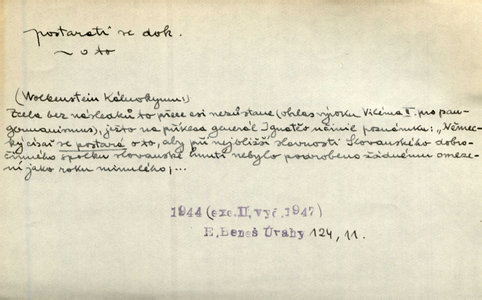 postarati se dok.
~ o to
(Wolkenstein Kálnokymu:)
Zcela bez následků to přece asi nezůstane (ohlas výroku Viléma II. pro pan-
germanismus), ježto na příklad generál Ignatěv učinil poznámku: „Němec-
ký císař se postará o to, aby při nejbližší slavnosti Slovanského dobro-
činného spolku slovanské hnutí nebylo podrobeno žádnému omeze-
ní jako roku minulého; ...
1944 (exc. II, vyč. 1947)
E. Beneš Úvahy 124, 11.